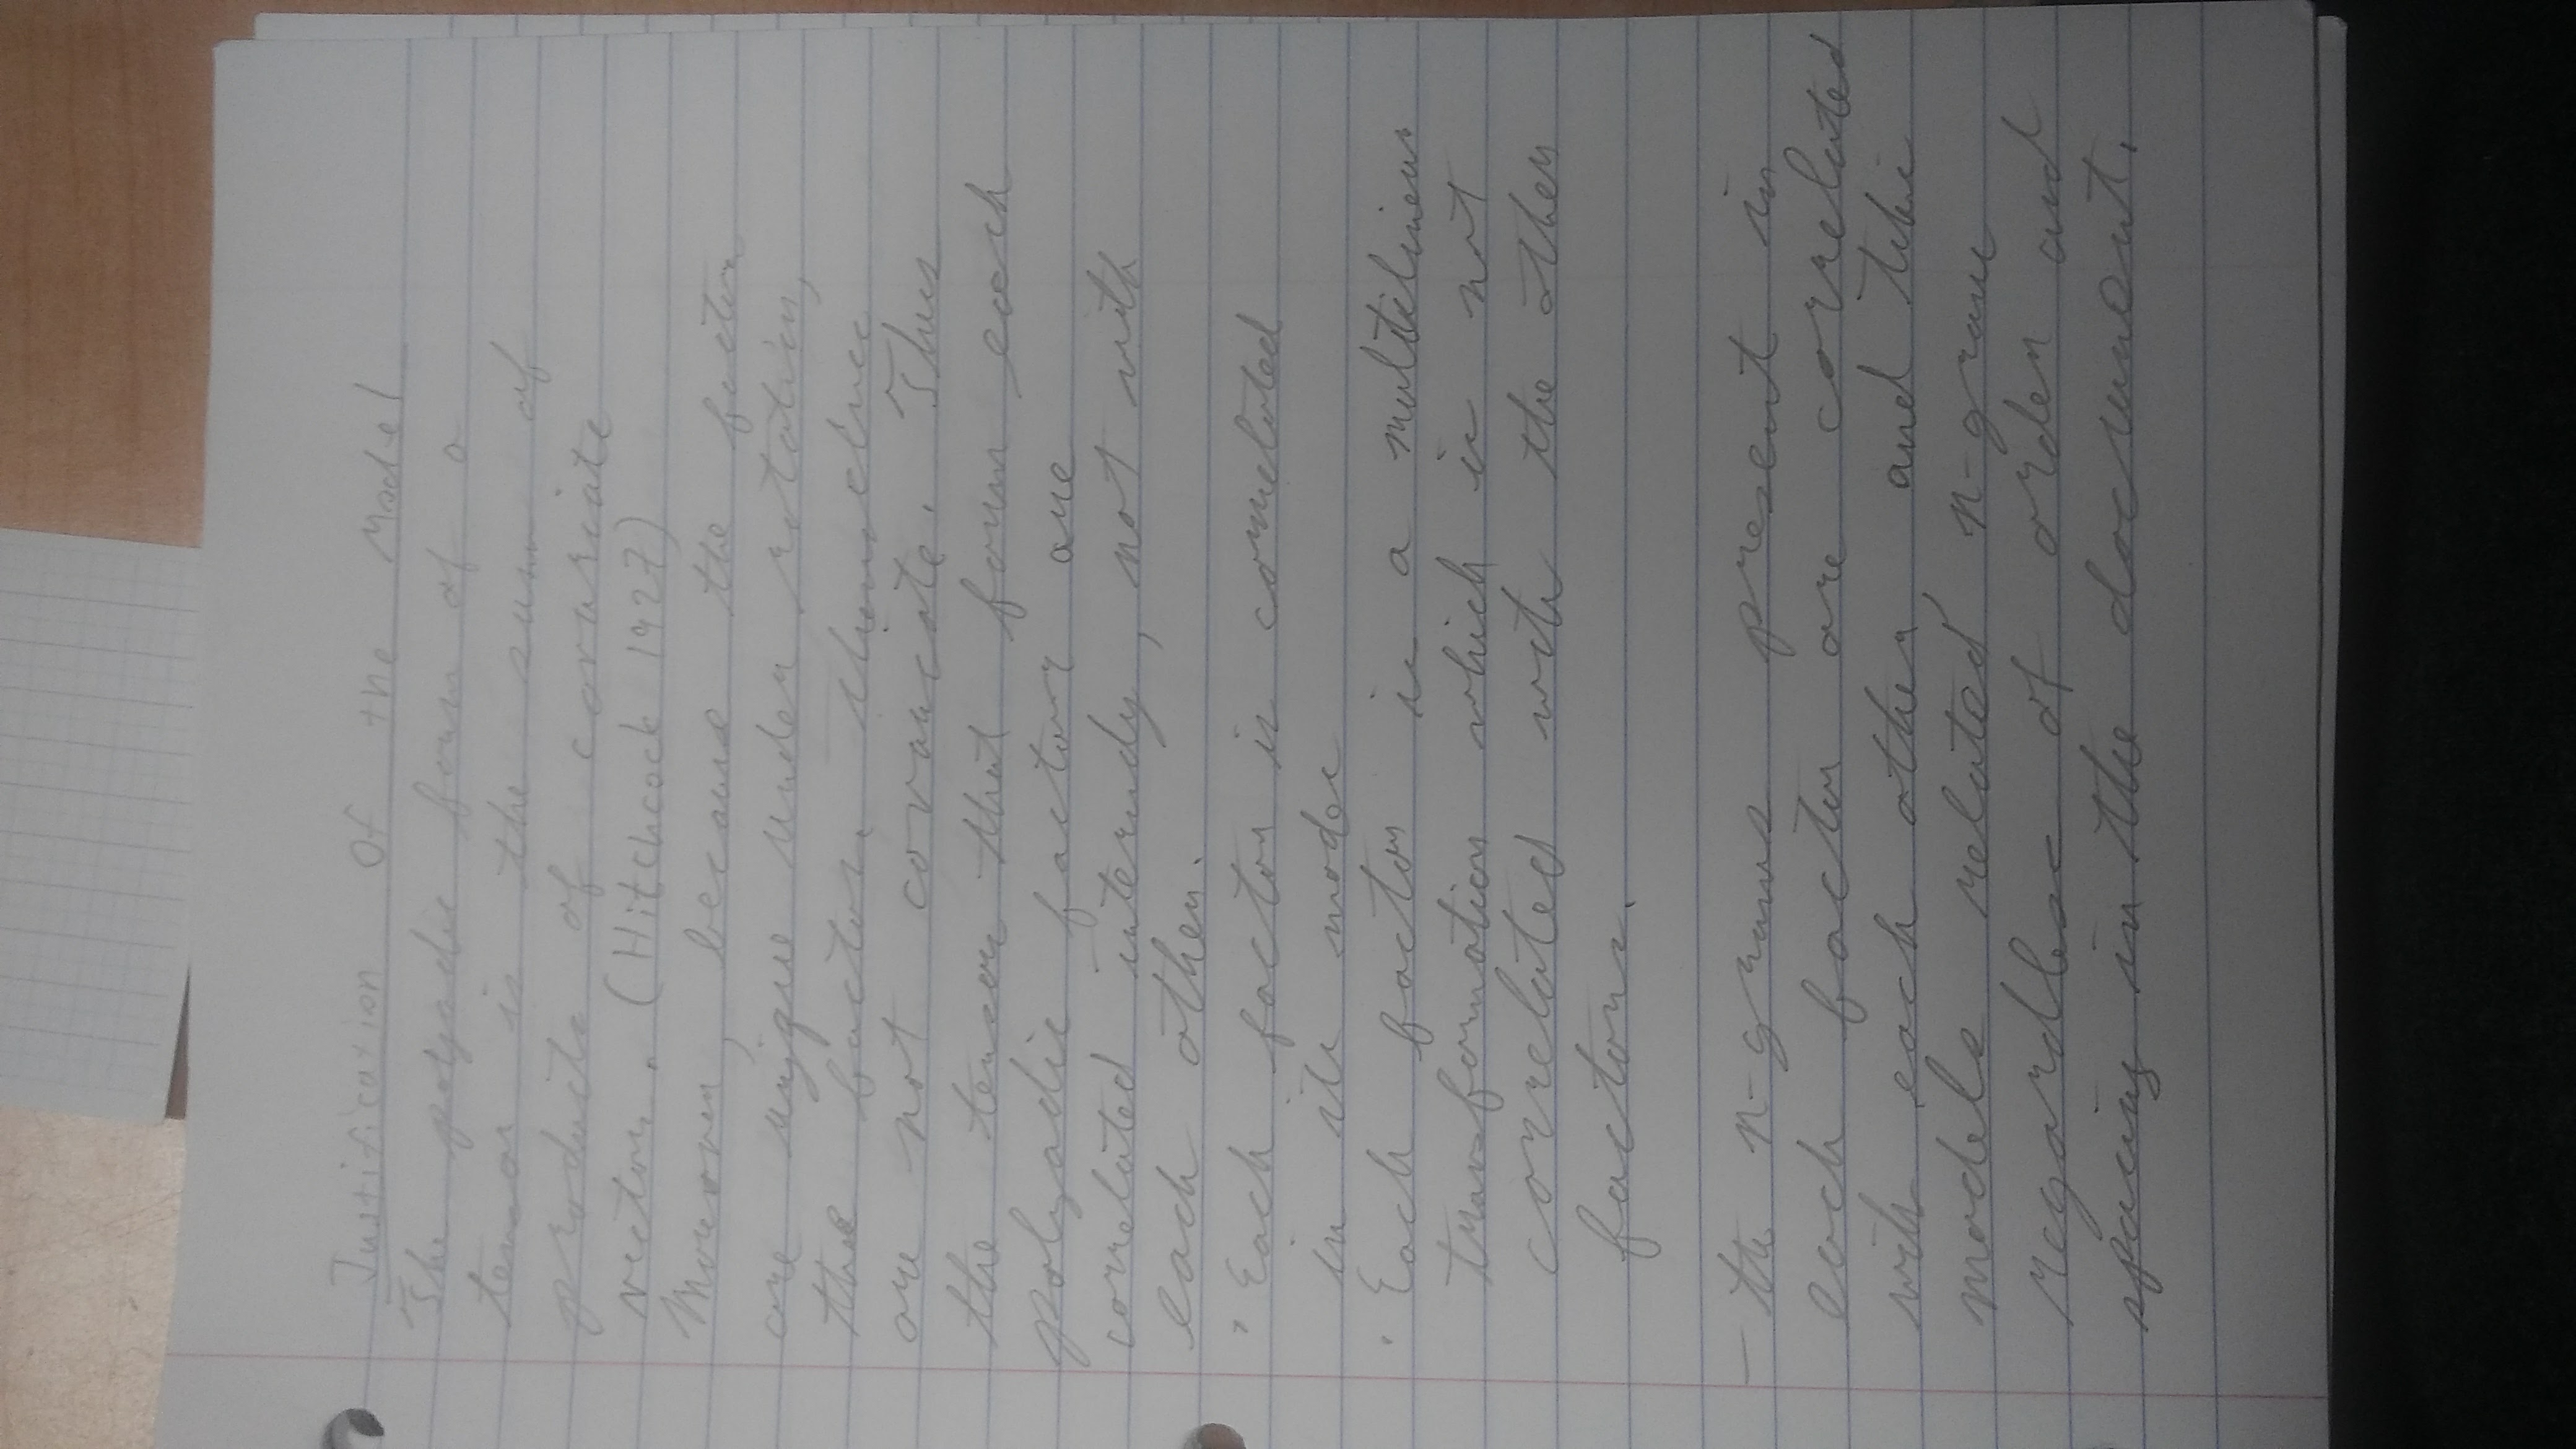 Justification Of the Model
The polyadic form of a
tensor is the sum of
products of covariate
vectors. (Hitchcock 1927)
Moreover, because the factors
are unique under rotation,
the factors themselves
are not covariate. Thus
the tensors that form each
polyadic factor are
correlated internaly, not with
each other.
· Each factor is correlated
in its modes
· Each factor is a multilinear
transformation which is not
correlated with the other
factors.
- the n-grams present in
each factor are correlated
with each other, and this
models related n-grams
regardless of order and
spacing in the document.